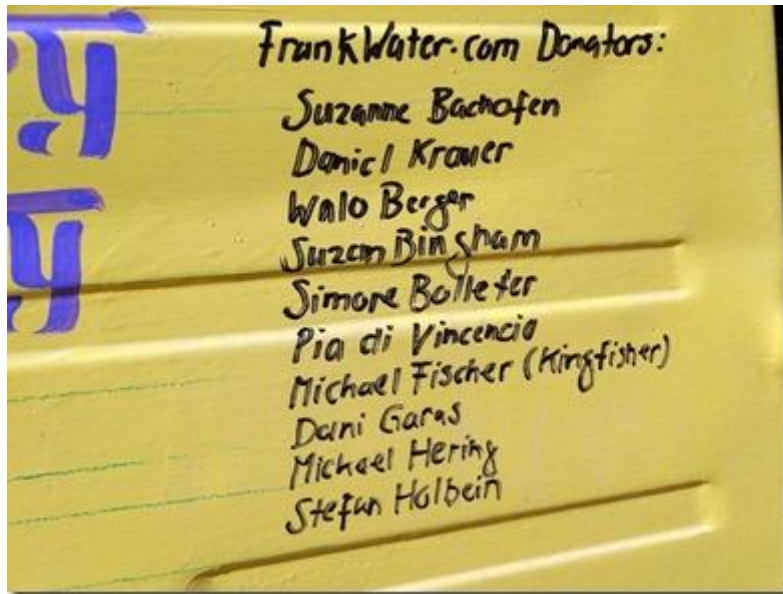 FrankWater.com Donators:
Suzanne Bachofen
Daniel Krauer
Walo Berger
Suzan Bingham
Simone Bolleter
Pia di Vincencio
Michael Fischer (Kingfisher)
Dani Garas
Michael Hering
Stefan Holbein